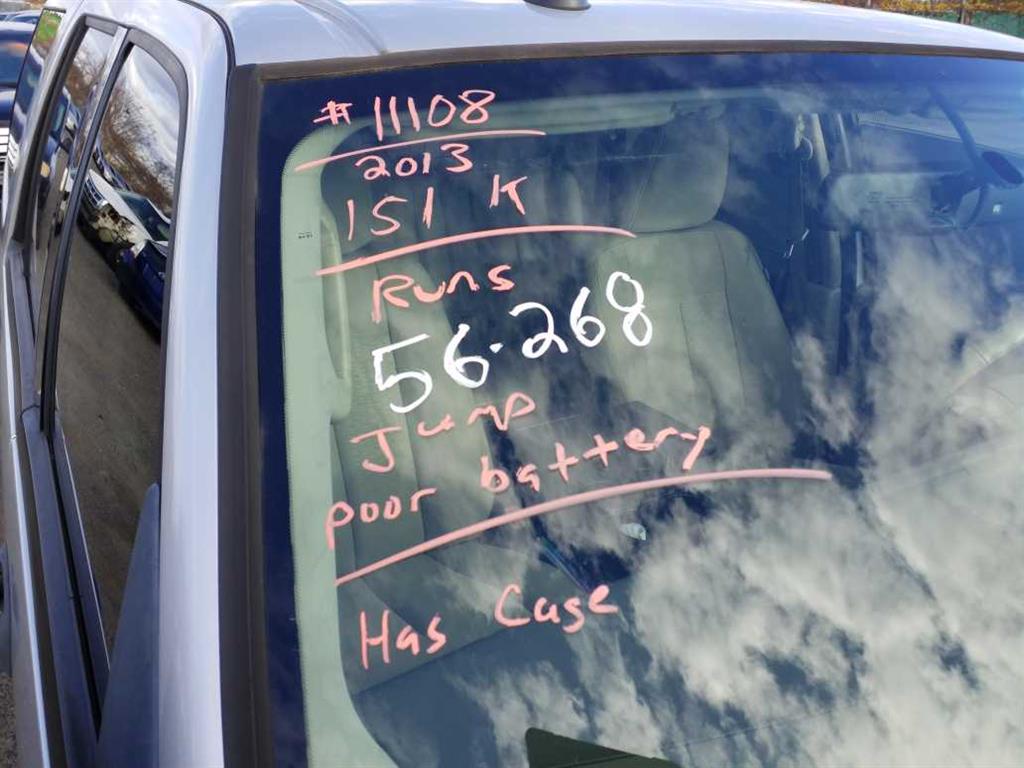 # 11108
2013
151 K
Runs
56-268
Jump
poor battery
Has Cage